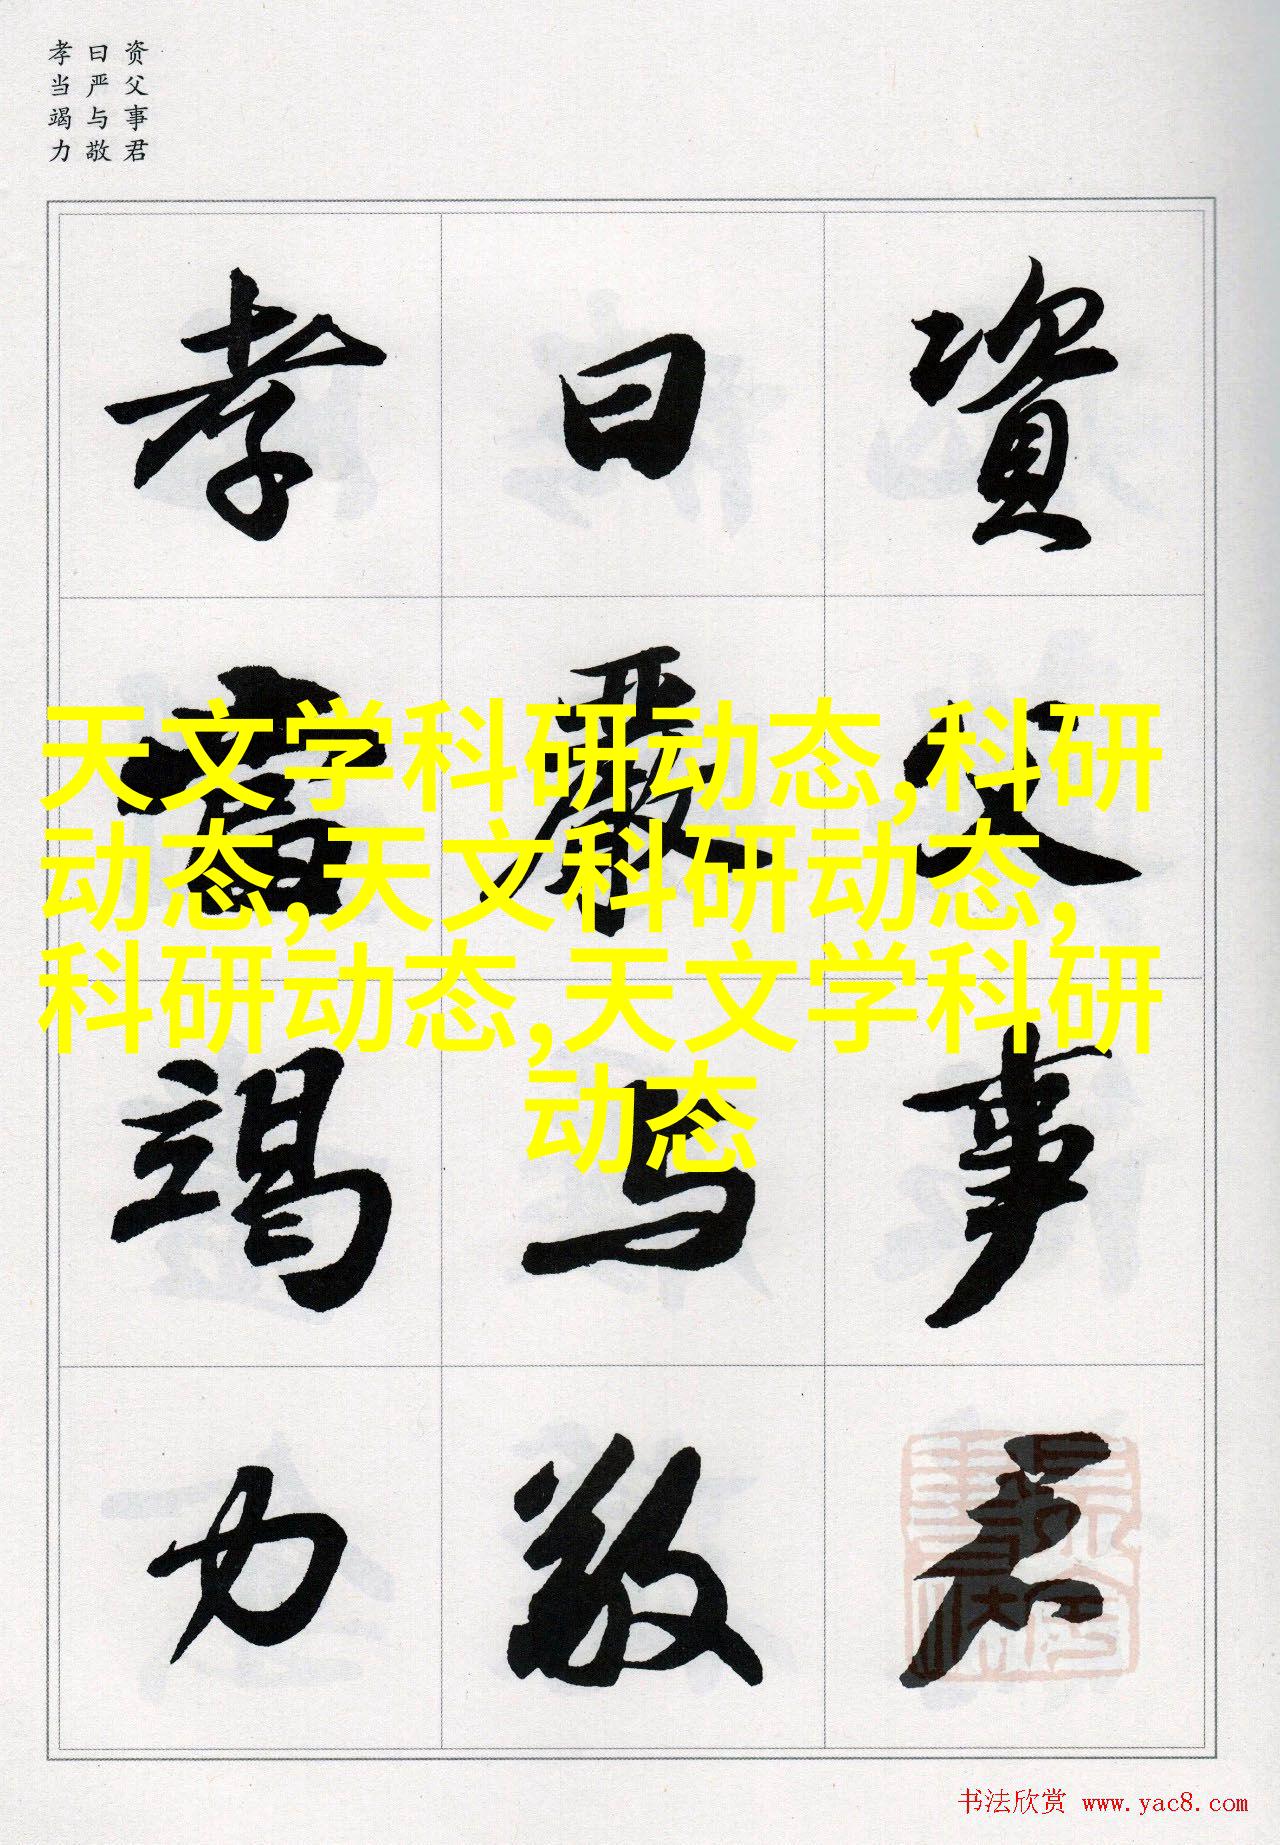 资父事君
曰严与敬
孝当竭力
資父事君
曰嚴与敬
孝當竭力
天文学科研动态,科研
动态,天文科研动态,
科研动态,天文学科研
动态
书法欣赏 www.yac8.com